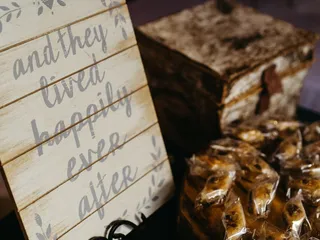 and they
lived
happily
ever
after